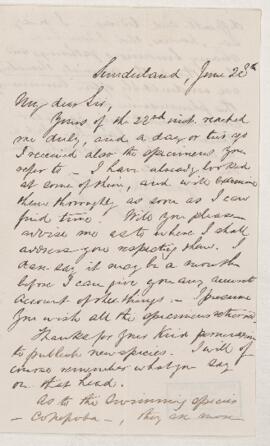 Sunderland, June 28th
My dear Sir,
Yours of the 22nd inst. reached
me duly, and a day or two ago
I received also the specimens you
refer to – I have already looked
at some of them, and will examine
them thoroughly as soon as I can
find time. Will you please
advise me as to where I shall
address you respecting them. I
dare say it may be a month
before I can give you any accurate
account of the things – I presume
you wish all the specimens returned.
Thanks for your kind permission
to publish new species. I will of
course remember what you say
on that head.
As to the swimming species
– Copepoda –, they are more